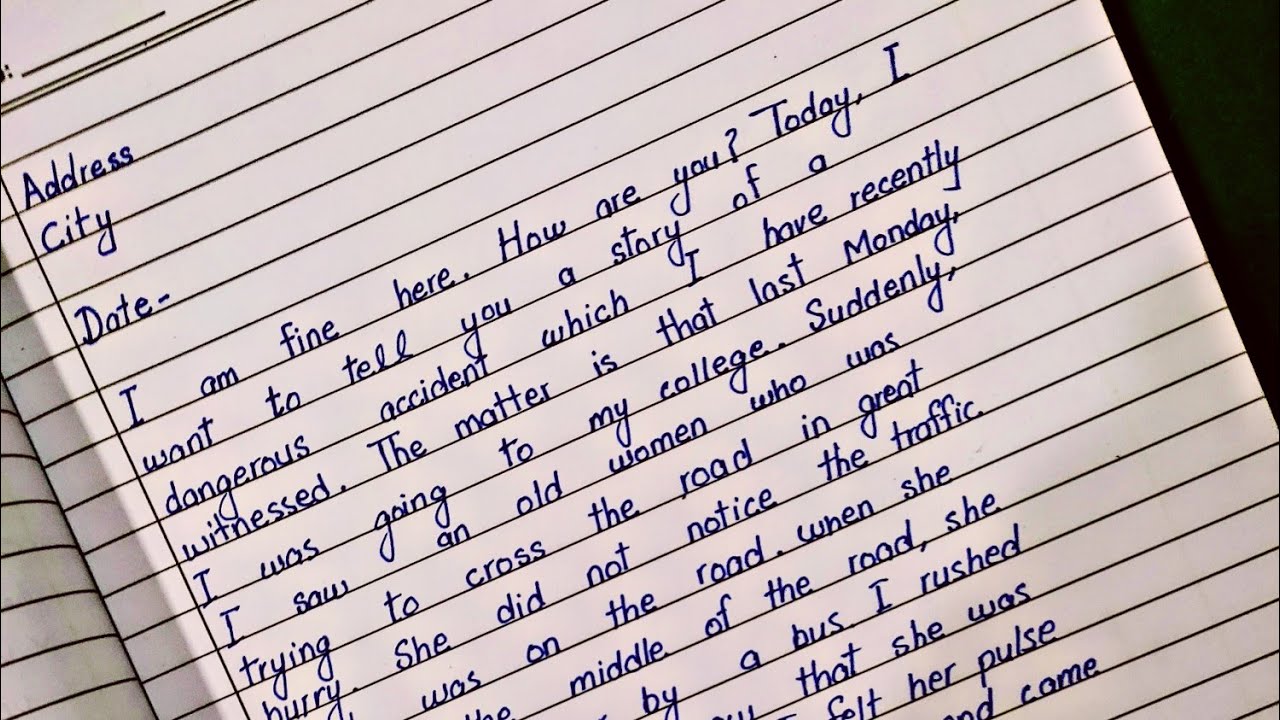 Address
City
Date-
I am fine here. How are you? Today, I
want to tell you a story of a
dangerous accident which I have recently
witnessed. The matter is that last Monday,
I was going to my college. Suddenly,
I saw an old women who was
trying to cross the road in great
hurry. She did not notice the traffic
was on the road. when she
the middle of the road, she
by a bus. I rushed
that she was
felt her pulse
and came